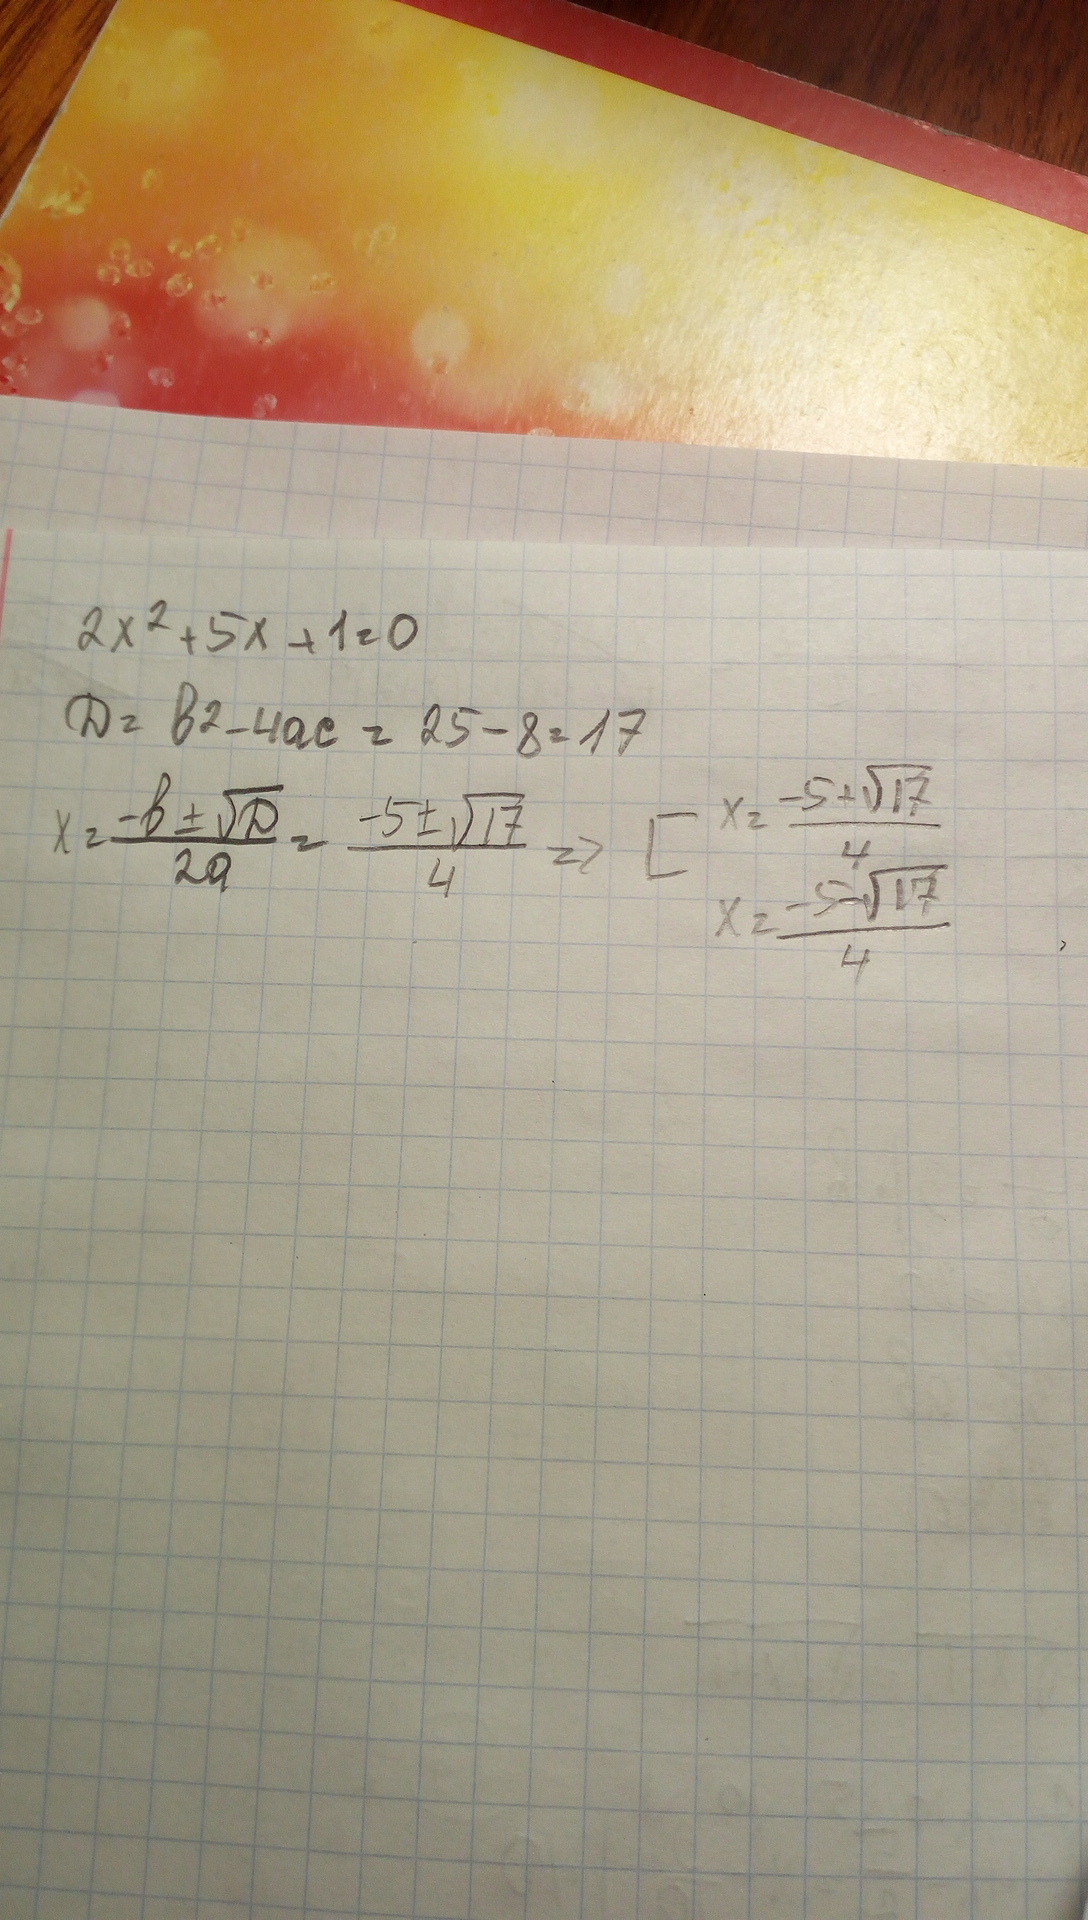 2x² + 5x + 1 = 0
D = b2 - 4ac = 25 - 8 = 17
x = (-b ± √D)/2a = (-5 ± √17)/4 => [ x = (-5 + √17)/4
x = (-5 - √17)/4